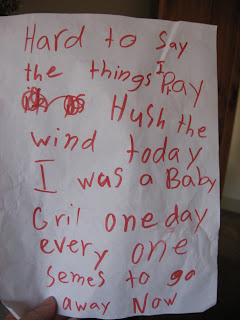 Hard to Say
the things I Pray
Hush the
wind today
I was a Baby
Gril one day
every one
semes to go
away Now